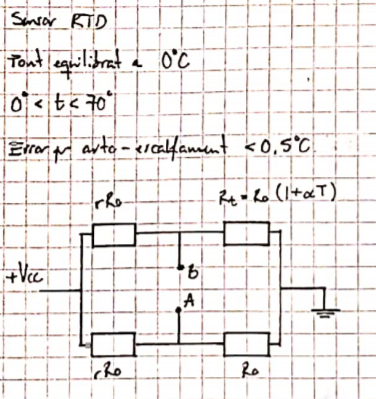 Sensor RTD
Pont equilibrat a 0°C
0° < t < 70°
Error per auto-escalfament < 0,5°C
rRo
Rt = Ro (1+αT)
B
+Vcc
A
rRo
Ro